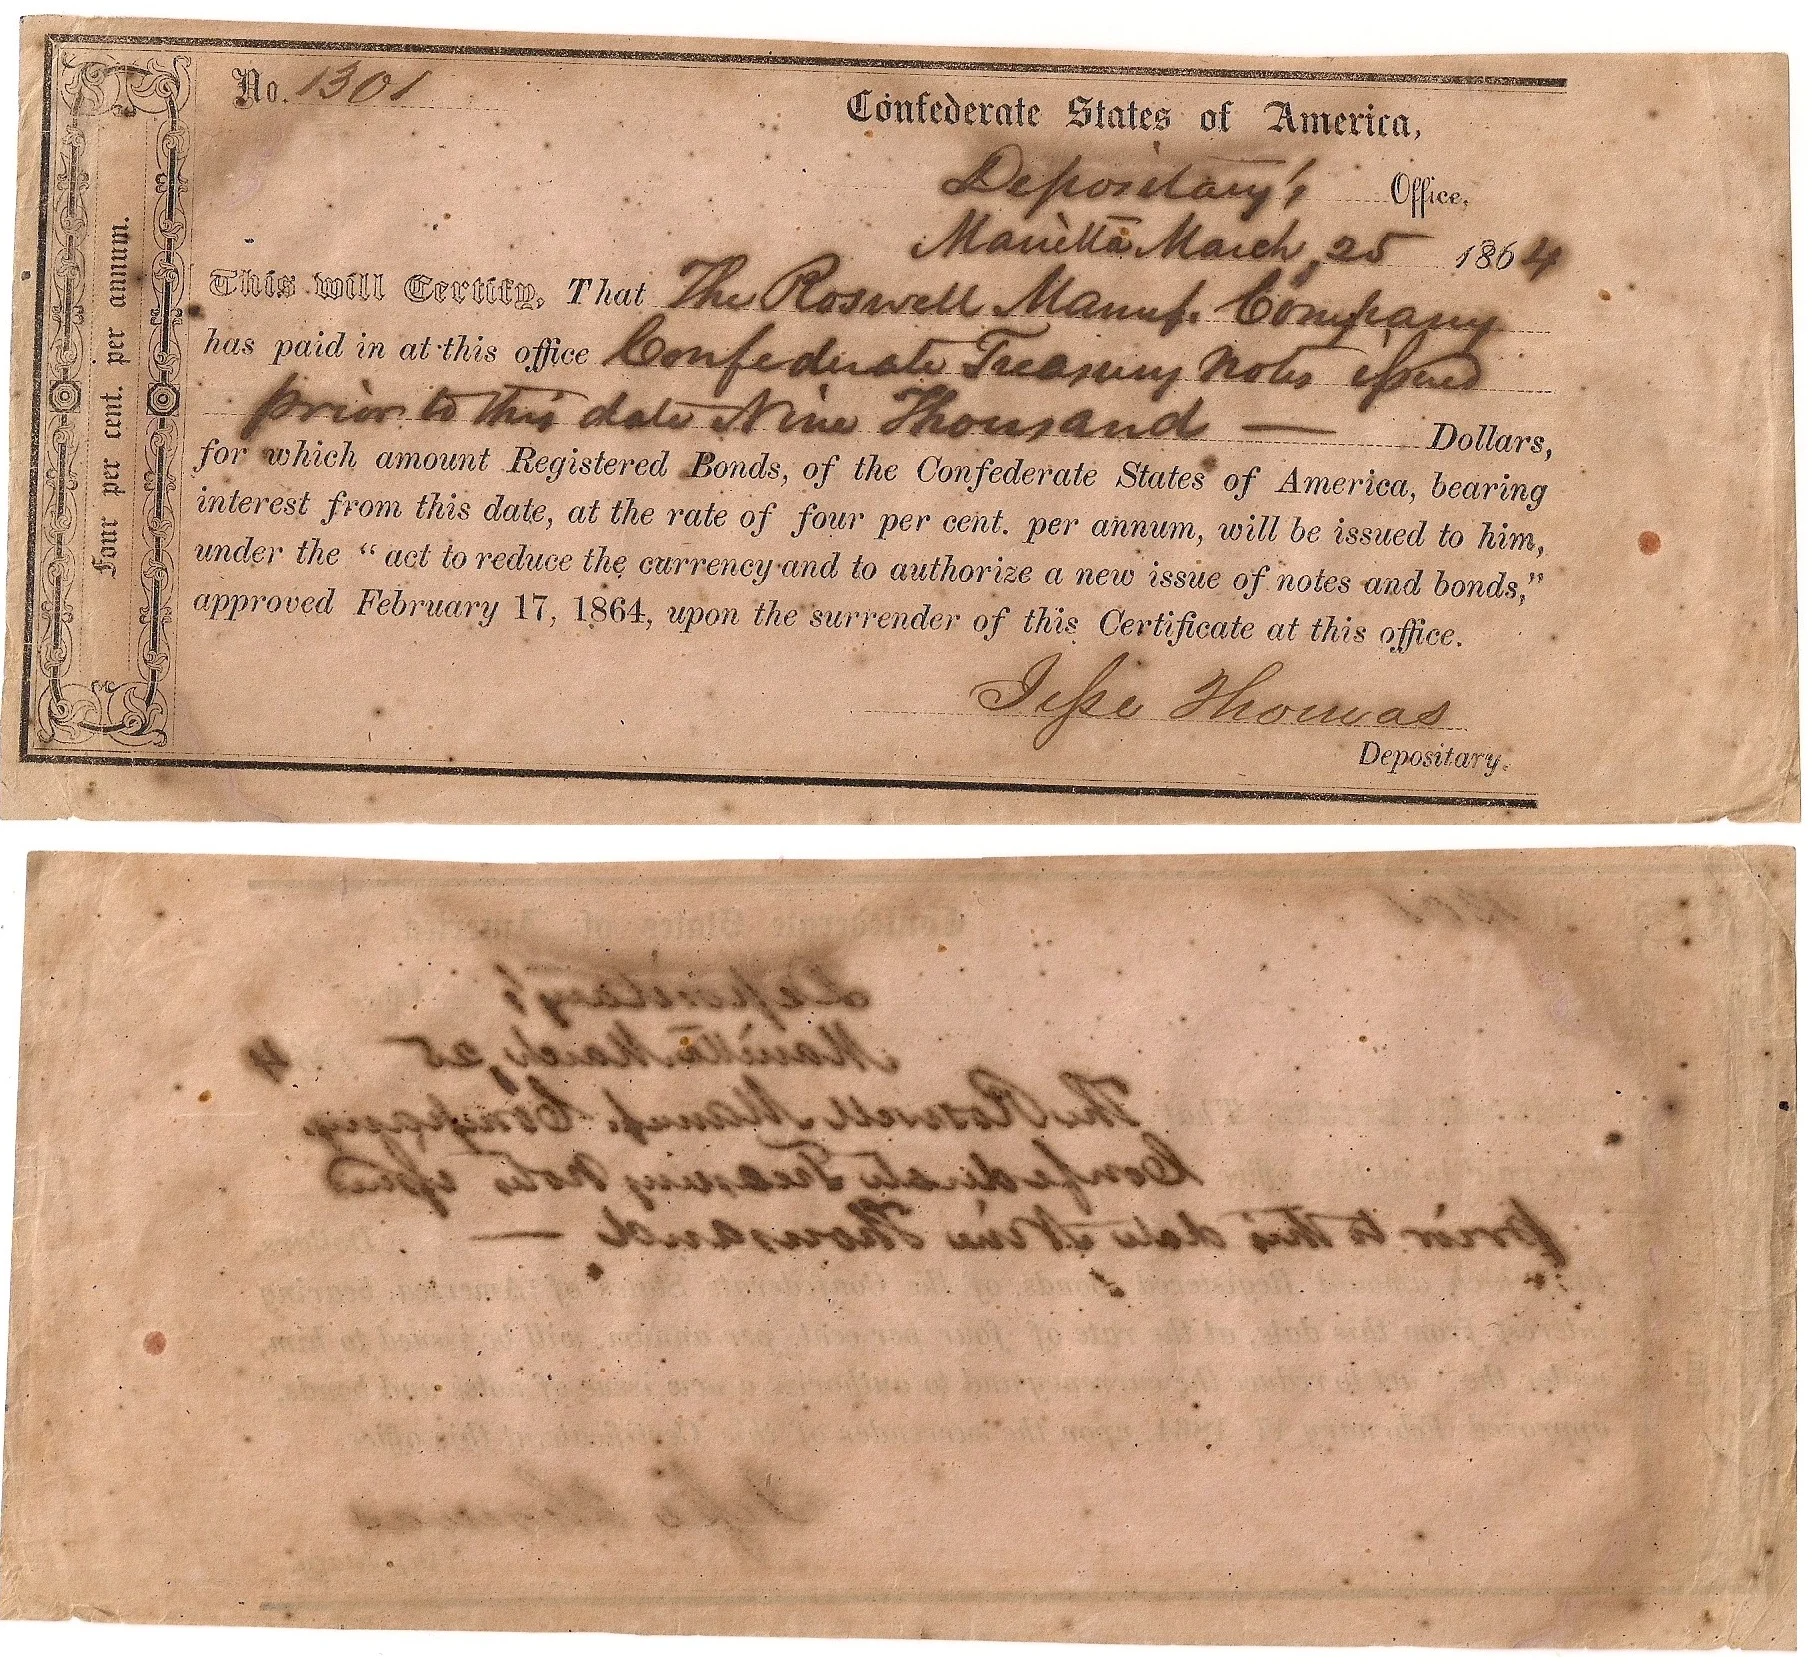 No. 1301
Confederate States of America,
Depositary's Office,
Marietta March, 25 1864
This will Certify, That The Roswell Manuf. Company
has paid in at this office Confederate Treasury Notes issued
prior to this date Nine Thousand — Dollars,
for which amount Registered Bonds, of the Confederate States of America, bearing
interest from this date, at the rate of four per cent. per annum, will be issued to him,
under the "act to reduce the currency and to authorize a new issue of notes and bonds,"
approved February 17, 1864, upon the surrender of this Certificate at this office.
Jesse Thomas
Depositary.
Four per cent. per annum.